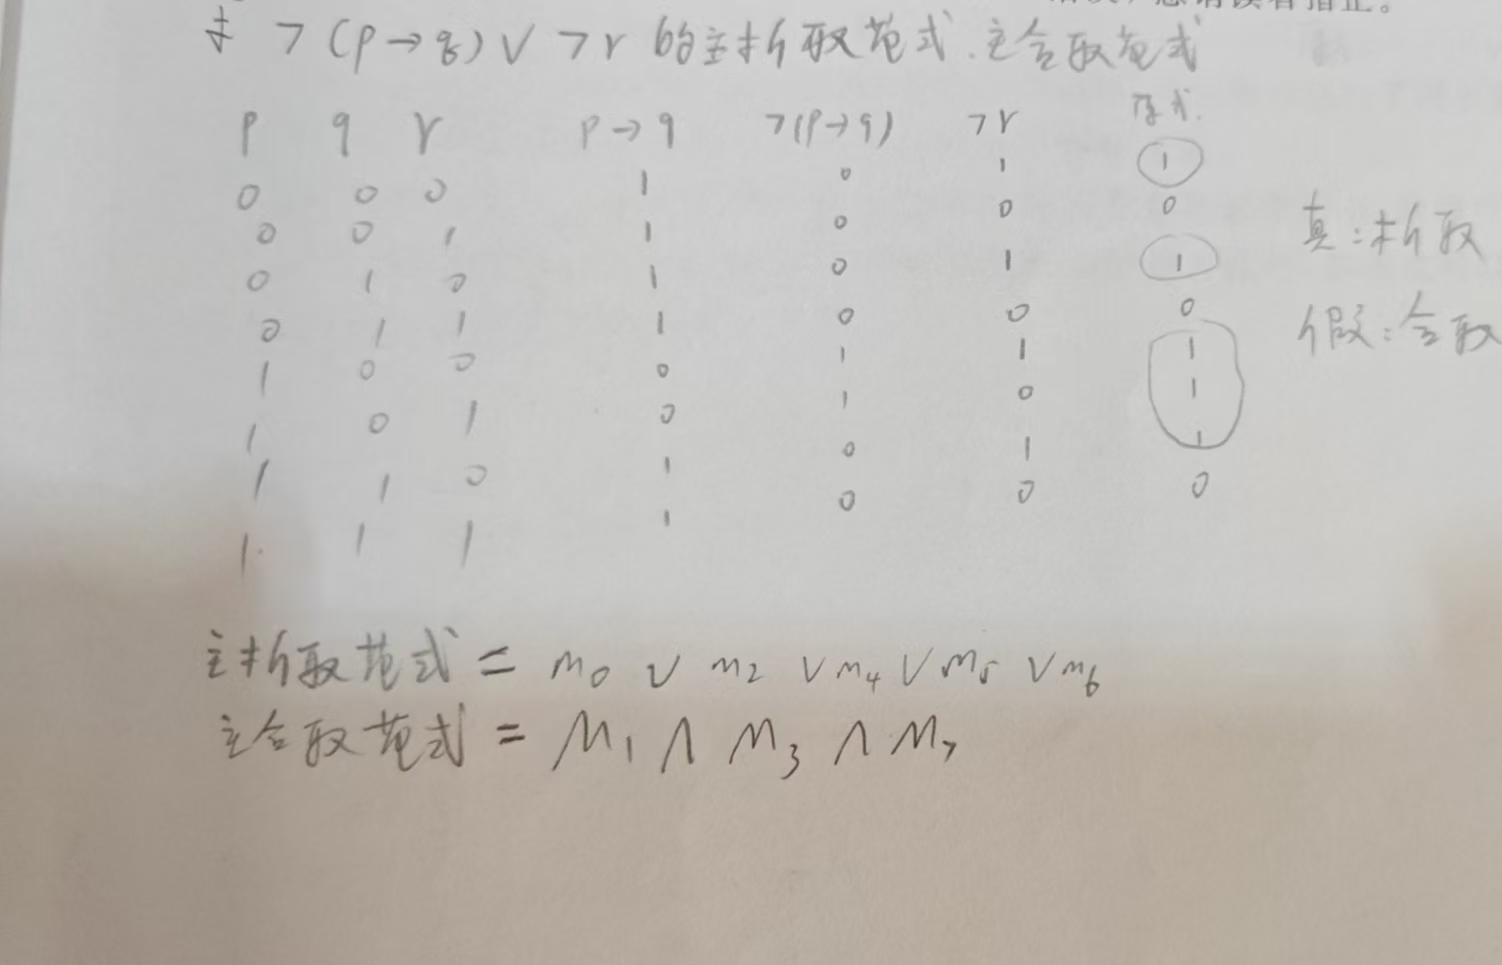 求 ㄱ(p→q)∨ㄱr 的主析取范式、主合取范式
p q r p→q ㄱ(p→q) ㄱr 原式
0 0 0 1 0 1 1
0 0 1 1 0 0 0
0 1 0 1 0 1 1
0 1 1 1 0 0 0
1 0 0 0 1 1 1
1 0 1 0 1 0 1
1 1 0 1 0 1 1
1 1 1 1 0 0 0
真:析取
假:合取
主析取范式 = m0 ∨ m2 ∨ m4 ∨ m5 ∨ m6
主合取范式 = M1 ∧ M3 ∧ M7